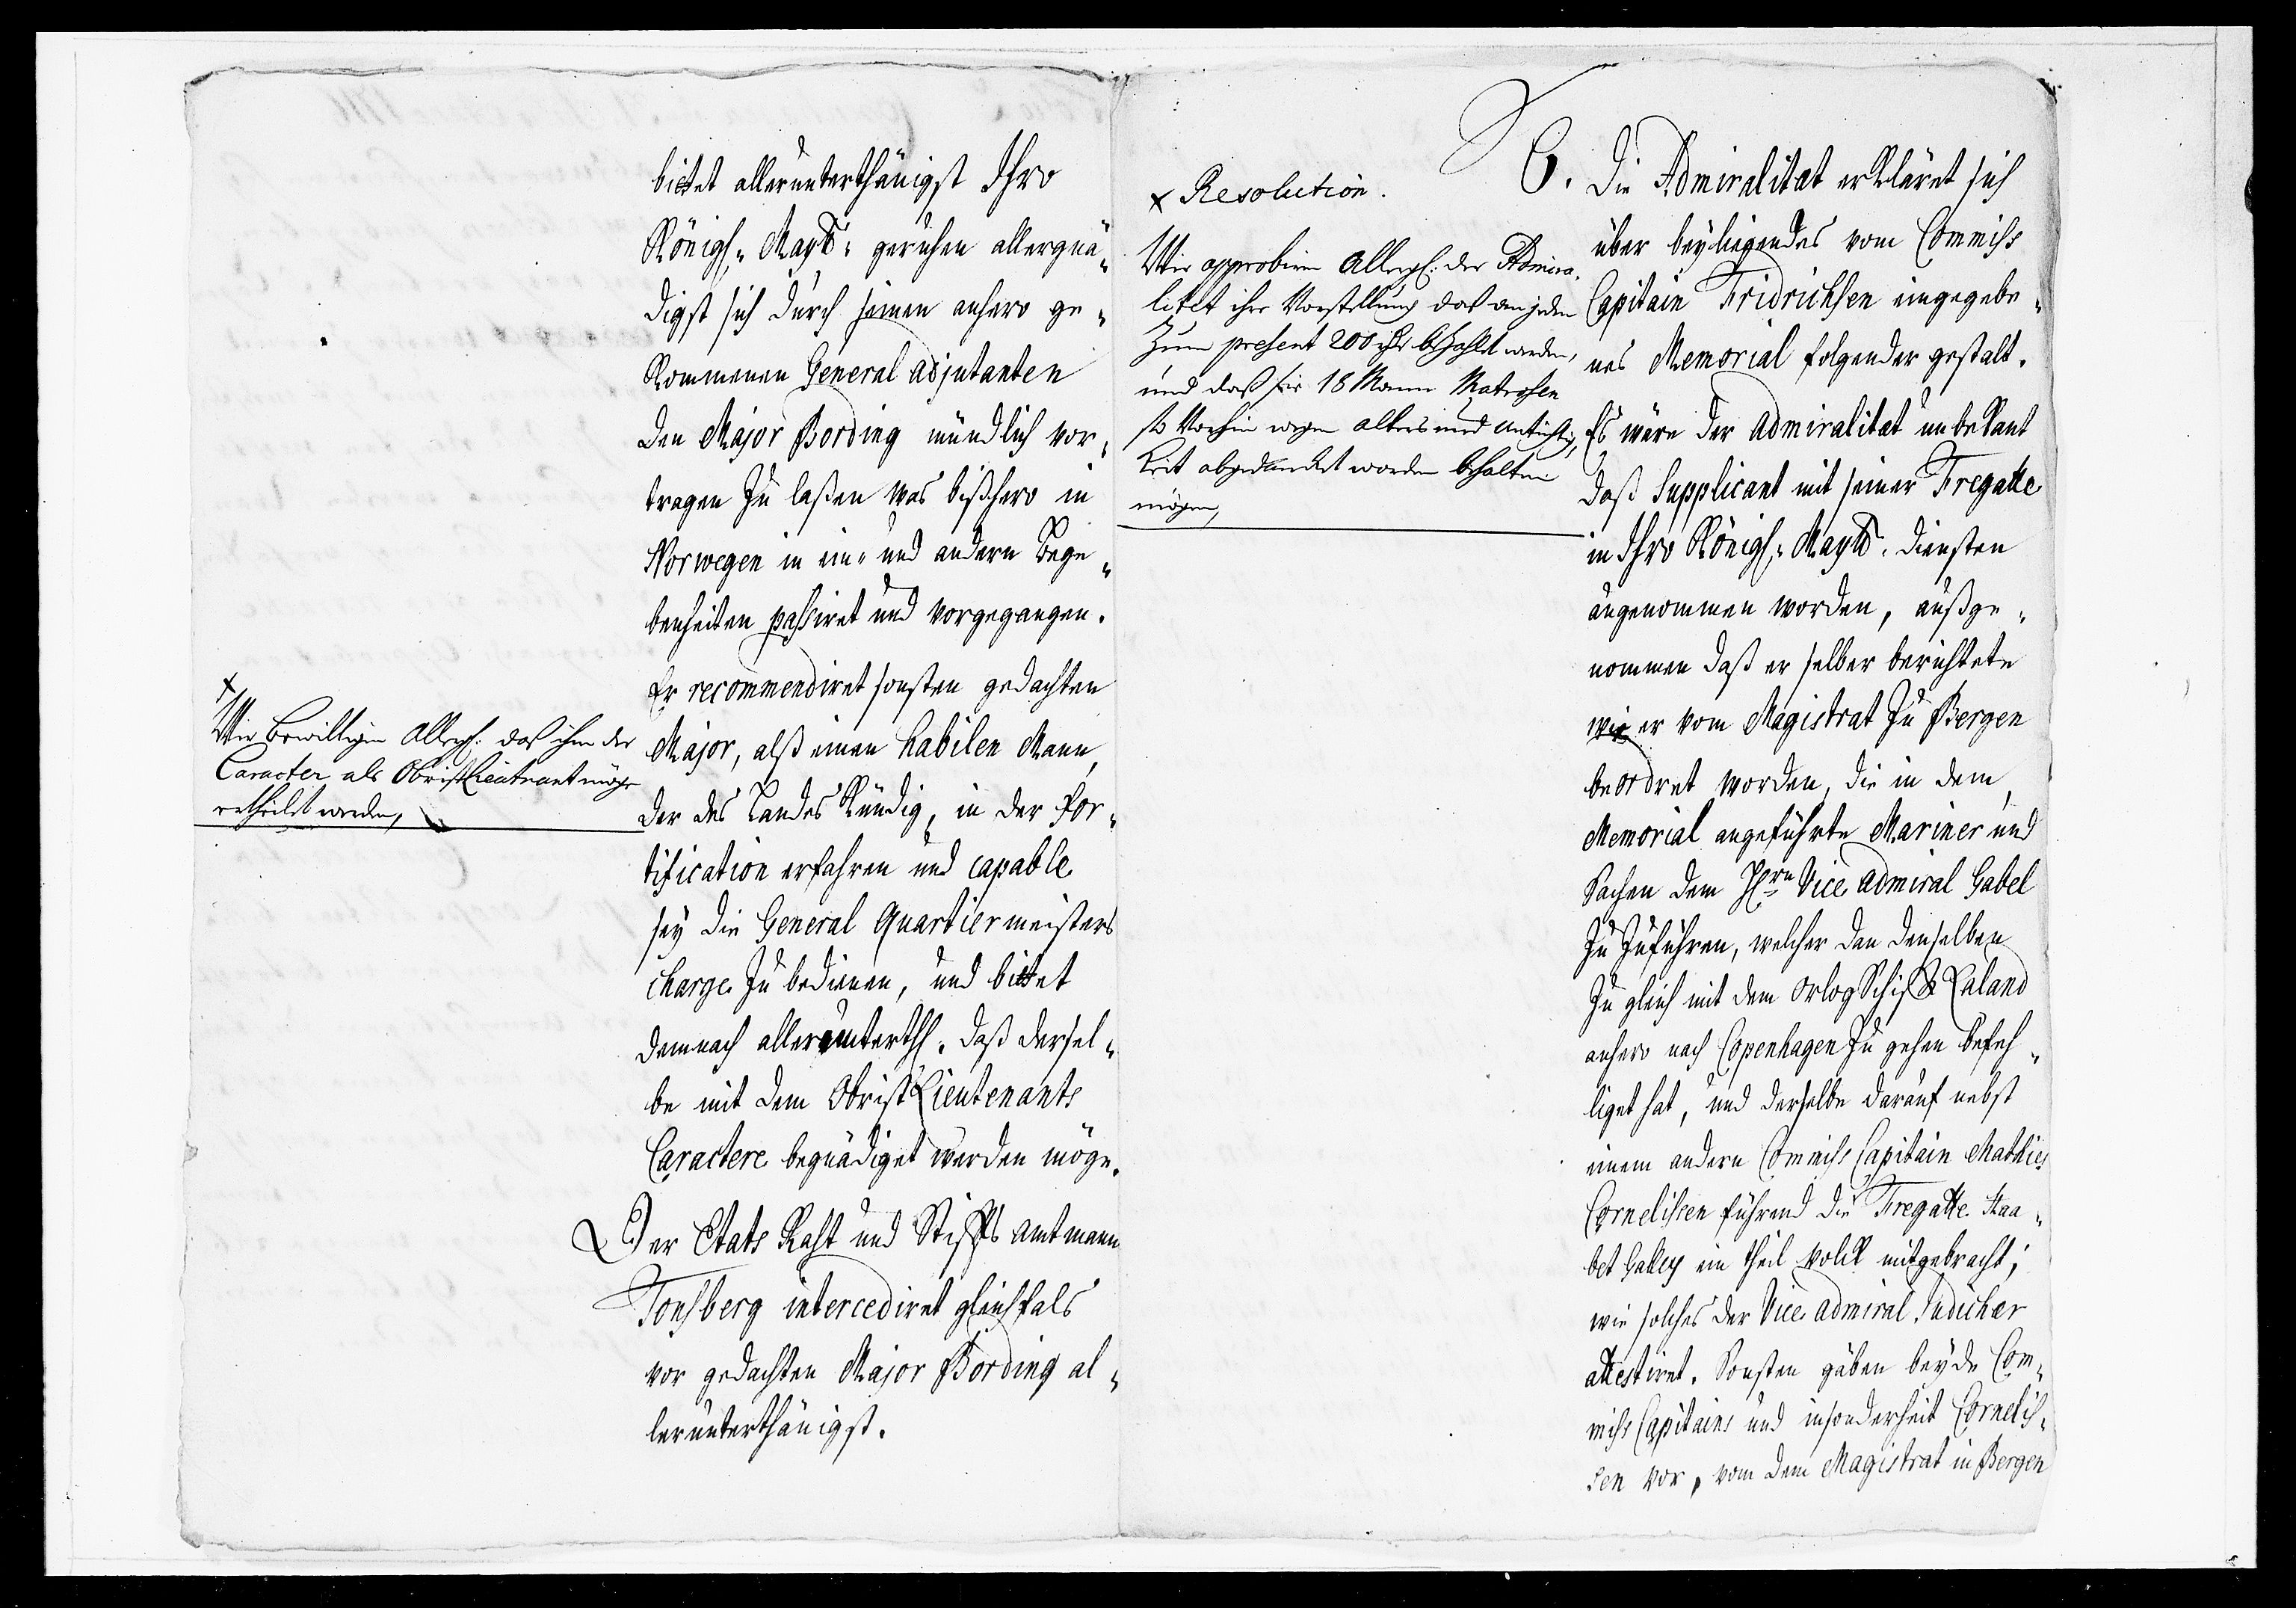 bittet allerunterthänigst Ihro
Königl: Maytt: geruhen allergnä„
digst sich durch seinen anhero ge„
kommenen General adjutanten
den Major Bording mündlich vor„
tragen zu laßen was bißhero in
Norwegen in ein- und andern Bege„
benheiten passiret und vorgegangen.
Er recommendiret sonsten gedachten
Major, alß einen habilen Mann,
der des Landes kündig, in der For„
tification erfahren und capable
sey die General Quartiermeisters
charge zu bedienen, und bittet
demnach allerunterth. daß dersel„
be mit dem Obrist Lieutenants
Caractere begnädiget werden möge.
Der Etats Raht und Stiffts amtmann
Tonsberg intercediret gleichfals
vor gedachten Major Bording al„
lerunterthänigst.
x
Wir bewilligen Allergl: daß ihm der
Caracter als Obristlieutnant möge
ertheilet werden,
x Resolution.
Wir approbiren Allergl: der Admira„
litet ihre Vorstellung daß an jeden
zum present 200 rdr bezahlt werden,
und daß sie 18 Mann Matrosen
so vorhin wegen alters und untüchtig„
keit abgedancket worden behalten
mögen,
6. Die Admiralitat erkläret sich
über beyliegendes vom Commiss
Capitain Fridrichsen eingegebe„
nes Memorial folgender gestalt.
Es wäre der Admiralitat unbekant
daß Supplicant mit seiner Fregatte
in Ihro Königl: Maytt: diensten
angenommen worden, außge„
nommen daß er selber berichtete
wie er vom Magistrat zu Bergen
beordret worden, die in dem
Memorial angeführte Mariner und
Sachen dem Hrn Vice Admiral Gabel
zu zuführen, welcher den denselben
zu gleich mit dem Orlog Schiff Laland
anhero nach Copenhagen zu gehen befeh„
liget hat, und derselbe darauf nebst
einem andern Commiss Capitain Mathies
Cornelissen führend die Fregatte Haa„
bet Galley ein theil volck mitgebracht;
wie solches der Vice Admiral Judichær
attestiret. Sonsten gäben beyde Com„
miss Capitains und insonderheit Cornelis„
sen vor, vom dem Magistrat in Bergen